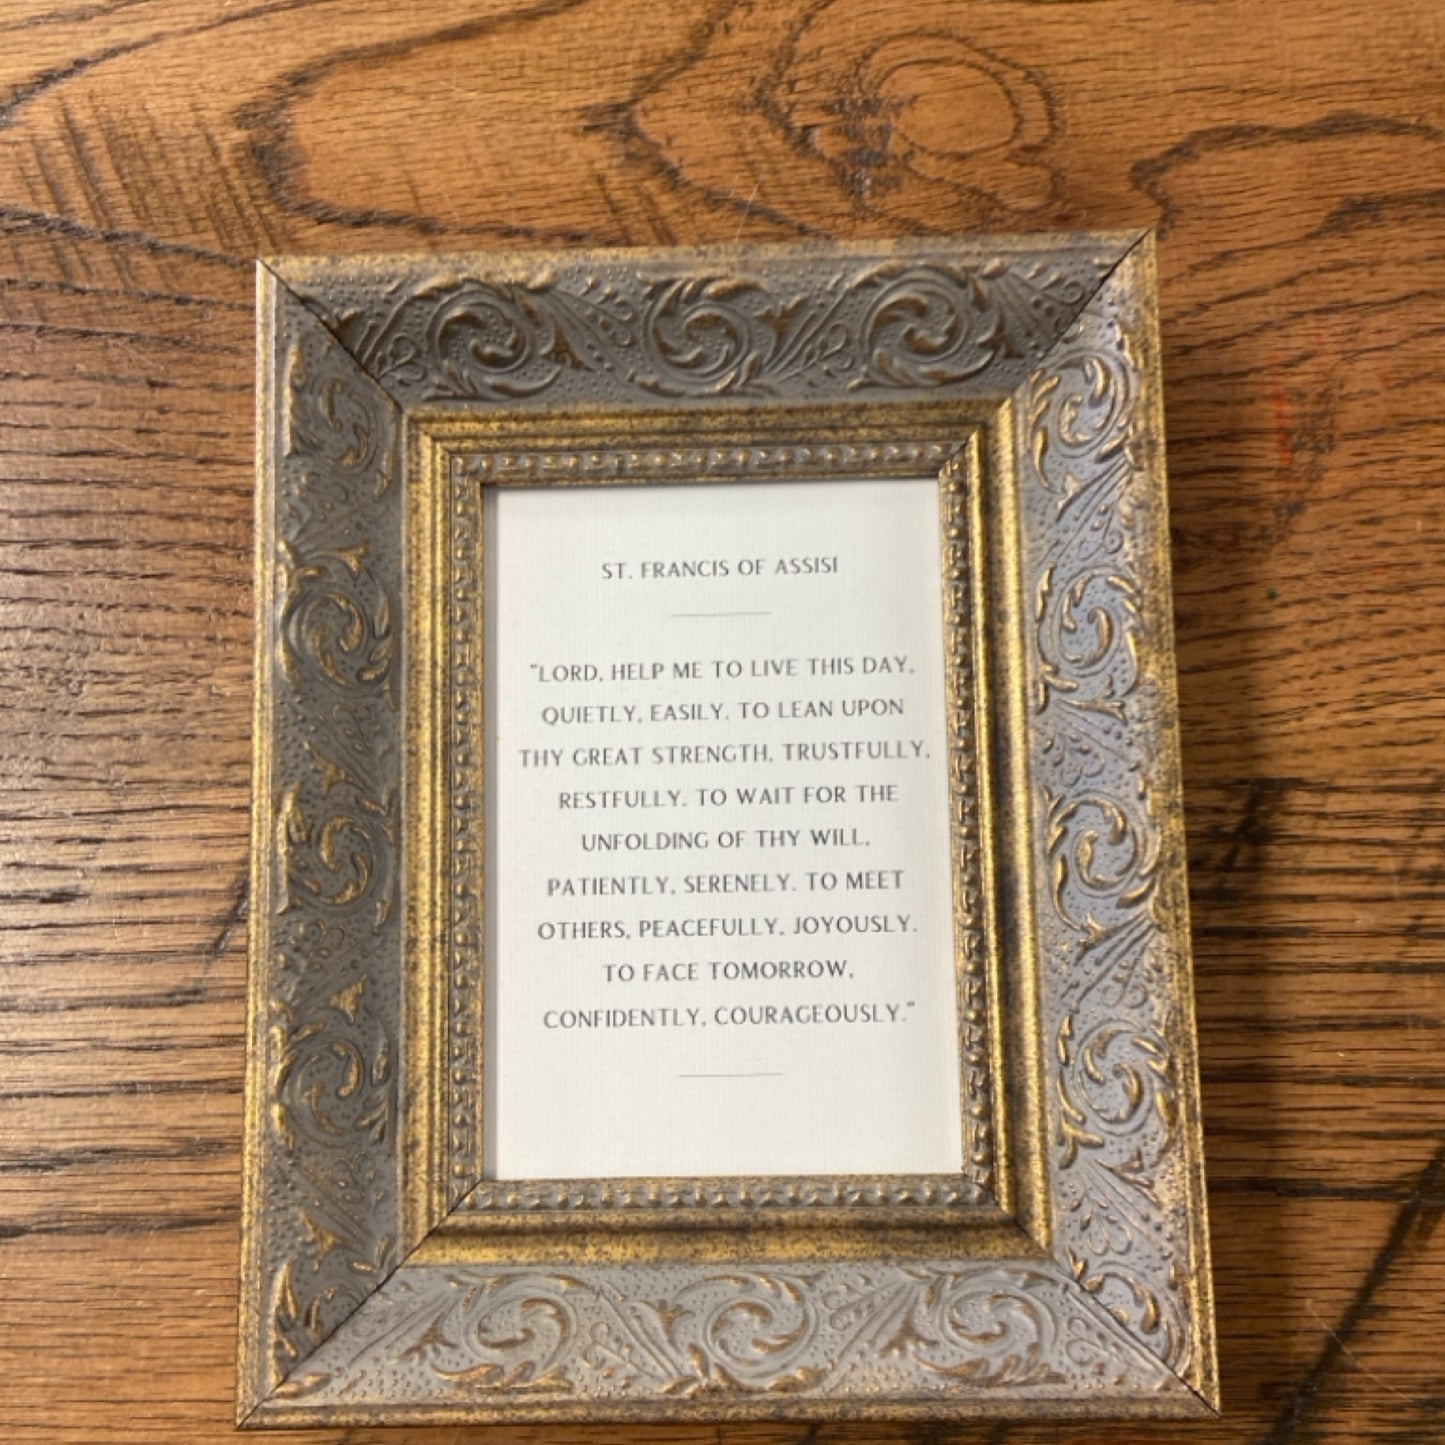 ST. FRANCIS OF ASSISI
"LORD, HELP ME TO LIVE THIS DAY,
QUIETLY, EASILY. TO LEAN UPON
THY GREAT STRENGTH, TRUSTFULLY,
RESTFULLY. TO WAIT FOR THE
UNFOLDING OF THY WILL,
PATIENTLY, SERENELY. TO MEET
OTHERS, PEACEFULLY, JOYOUSLY.
TO FACE TOMORROW,
CONFIDENTLY, COURAGEOUSLY."